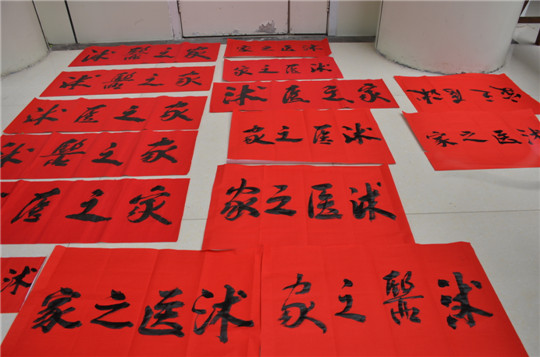 沭醫之家
沭醫之家
沭医之家
沭醫之家
医之家
沭
沭医之家
沭医之家
沭医之家
沭医之家
沭医之家
沭医之家
沭醫之家
沭医之家
沭医之家